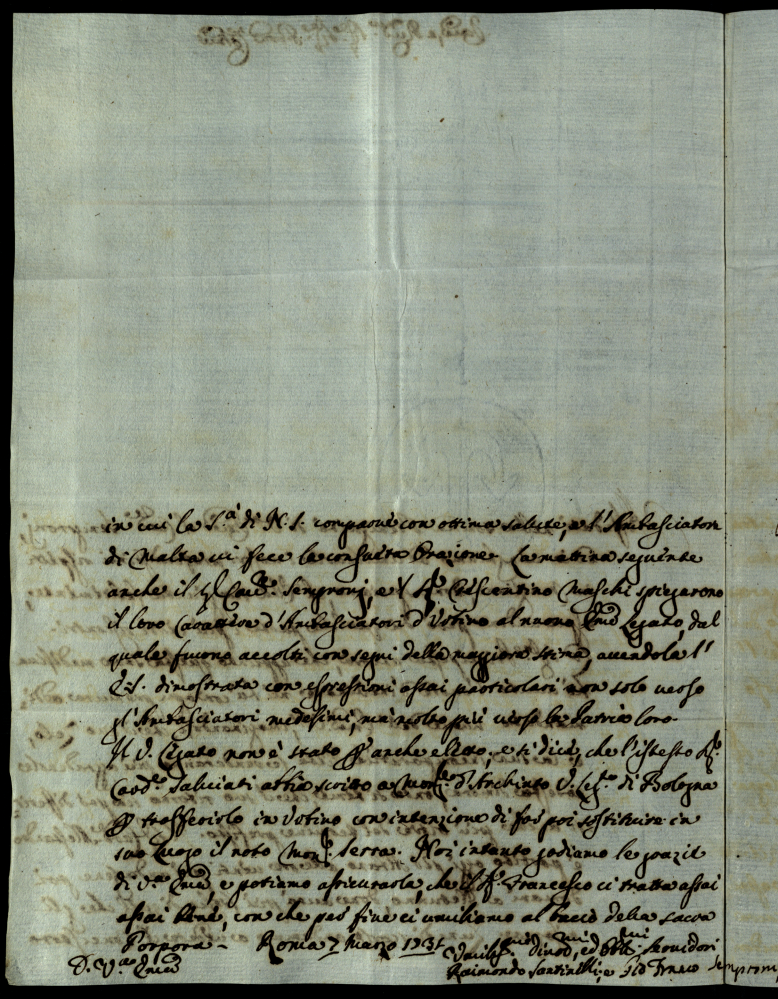 in cui la S.tà di N. S. comparve con ottima salute, e l'Ambasciatore
di Malta vi fece la consueta Orazione. La mattina seguente
anche il Sempronj, e Crescentino Maschi spiegarono
il loro Carattere d'Ambasciatori d'Urbino al nuovo Legato, dal
quale furono accolti con segni della maggiore stima, avendola l'
E. S. dimostrata con espressioni assai particolari non solo verso
gl'Ambasciatori medesimi, ma molto più verso la Patria loro.
Il V. Legato non è stato anche eletto, e si dice, che l'istesso
Card.e Salviati abbia scritto a Mons.r d'Archinto V. Leg.o di Bologna
trasferirlo in Urbino con intenzione di far poi sostituire in
suo luogo il noto Mons.r Serra. Noi intanto godiamo le grazie
di V.ra Em.a, e potiamo assicurarla, che il Francesco ci tratta assai
assai bene, con che per fine ci umiliamo al bacio della sacra
Porpora. Roma 7 Marzo 1731
D. V.ra Em.a
Umiliss.mi divot.mi, ed obb.mi Servidori
Raimondo Santinelli, e Gio Franco Sempronj